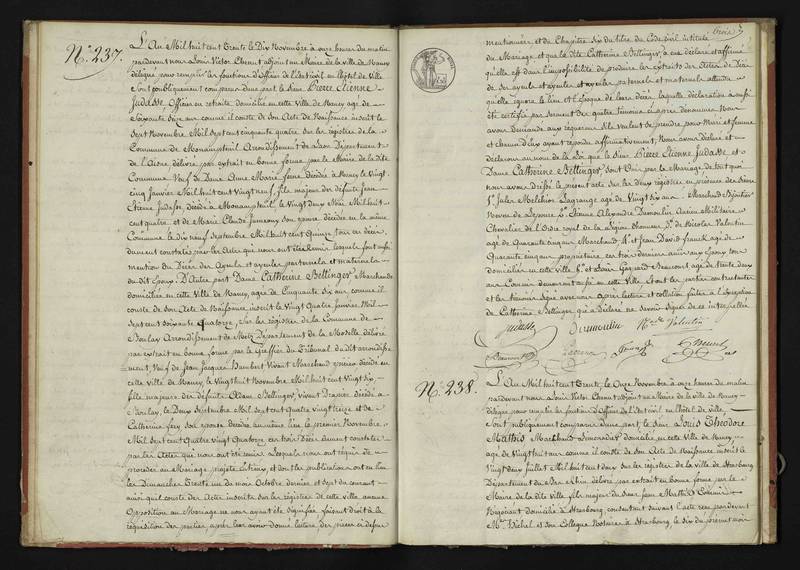 N.° 237.
L'An Mil huit cent Trente le Dix Novembre à onze heures du matin
pardevant nous Louis Victor Chenut adjoint au Maire de la ville de Nancy
délégué pour remplir les fonctions d'Officier de l'état civil en l'hôtel de Ville
Sont publiquement comparus d'une part le Sieur Pierre Etienne
Judasse, Officier en retraite domicilié en cette Ville de Nancy âgé de
Soixante seize ans comme il conste de son Acte de Naissance inscrit le
Sept Novembre Mil Sept cent cinquante quatre sur les registres de la
Commune de Monampteuil Arrondissement de Laon Département
de l'Aisne délivré par extrait en bonne forme par le Maire de la dite
Commune Veuf de Dame Anne Marie décédée à Nancy le Vingt
cinq Janvier Mil huit cent Vingt neuf, fils majeur des défunts Jean
Etienne Judasse, décédé à Monampteuil, le Vingt deux Mai Mil huit
cent quatre, et de Marie Claude son épouse décédée en la même
Commune le dix neuf Septembre Mil huit cent Quinze, tous ces décès
dument constatés par les Actes qui nous ont été remis lesquels font aussi
mention du Décès des Ayeuls et ayeules paternels et maternels
du dit Epoux. D'Autre part Dame Catherine Bellinger Marchande
domiciliée en cette Ville de Nancy, agée de Cinquante six ans comme il
conste de son Acte de Naissance inscrit le Vingt Quatre Janvier Mil
Sept cent soixante Quatorze, sur les registres de la Commune de
Boulay Arrondissement de Metz Département de la Moselle délivré
par extrait en bonne forme par le Greffier du Tribunal du dit arrondisse-
ment, Veuve de Jean Jacques Humbert Vivant Marchand décédé en
cette ville de Nancy le Vingt huit Novembre Mil huit cent Vingt six,
fille majeure des défunts Adam Bellinger, vivant Drapier décédé à
Boulay, le Deux Septembre Mil Sept cent quatre vingt treize et de
Catherine son épouse décédée au même lieu le premier Novembre
Mil Sept cent Quatre vingt Quatorze ces trois Décès dument constatés
par les Actes qui nous ont été remis Lesquels nous ont requis de
procéder au Mariage projeté entr'eux, et dont les publications ont eu lieu
les Dimanches Trente un du mois Octobre dernier et Sept du courant
ainsi qu'il conste des Actes inscrits sur les registres de cette ville, aucune
Opposition au Mariage ne nous ayant été Signifiée faisant droit à la
réquisition des parties, après leur avoir donné lecture des pièces ci dessus
mentionnées, et du Chapitre Six du titre du Code Civil intitulé
du Mariage, et que la dite Catherine Bellinger, a eue déclaré et affirmé
qu'elle est dans l'impossibilité de produire les extraits des Actes de Décès
de ses ayeuls et ayeules paternels et maternels attendu
qu'elle ignore le lieu et l'époque de leur décès, laquelle déclaration a aussi
été certifiée par serment des quatre témoins ci après dénommés Nous
avons demandé aux requérans s'ils veulent se prendre pour Mari et femme
et chacun d'eux ayant répondu affirmativement, Nous avons déclaré et
déclarons au nom de la Loi que le Sieur Pierre Etienne Judasse, et
Dame Catherine Bellinger, Sont Unis par le Mariage de tout quoi
nous avons dressé le présent acte sur les deux registres en présence des Sieurs
1.° Jules Melchior Lagrange âgé de Vingt six ans Marchand Bijoutier
Neveu de l'épouse 2.° Etienne Alexandre Dumoulin Ancien Militaire
Chevalier de l'Ordre royal de la Légion d'honneur 3.° de Nicolas Valentin
âgé de Quarante cinq ans Marchand 4.° et Jean David âgé de
Quarante cinq ans, propriétaire
domiciliés en cette ville, âgé de trente deux
ans demeurant aussi en cette Ville, Et ont les parties contractantes
et les témoins Signé avec nous après lecture et collation faites à l'exception
de Catherine Bellinger qui a déclaré ne savoir signer de ce interpellée
Judasse Dumoulin N.as Valentin
Chenut
N.° 238.
L'An Mil huit cent Trente, le Onze Novembre à onze heures du matin
pardevant nous Louis Victor Chenut adjoint au Maire de la ville de Nancy
délégué pour remplir les fonctions d'Officier de l'Etat civil en l'hôtel de ville
Sont publiquement comparus d'une part, le Sieur Louis Théodore
Mathis Marchand Limonadier domicilié en cette ville de Nancy,
âgé de Vingt huit ans comme il conste de son Acte de Naissance inscrit le
Vingt deux Juillet Mil huit cent deux sur les registres de la ville de Strasbourg
Département du Bas Rhin délivré par extrait en bonne forme par le
Maire de la dite Ville fils majeur du Sieur Jean Mathis
Négociant domicilié à Strasbourg, consentant suivant l'acte reçu pardevant
M.e Michel et son Collègue Notaires à Strasbourg, le Six du présent mois